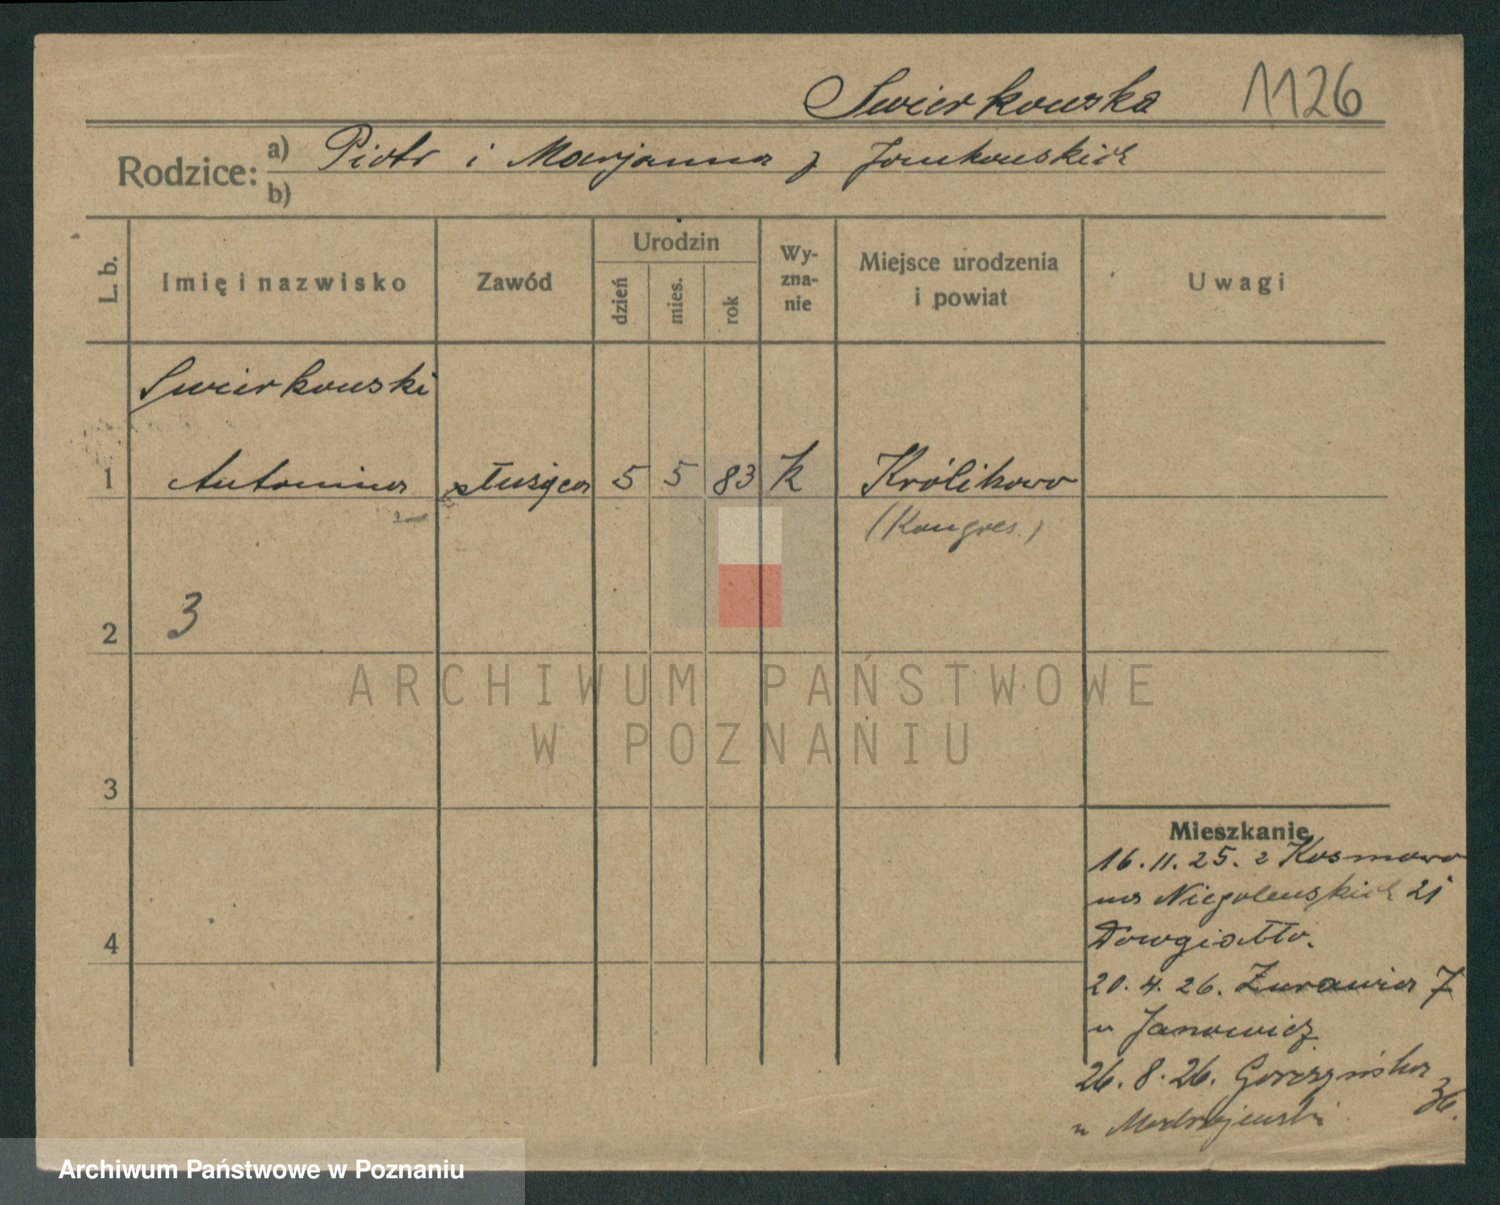 Swierkowska 1126
Rodzice: a) Piotr i Marjanna z Jankowskich
b)
L. b. Imię i nazwisko Zawód Urodzin dzień mies. rok Wy-zna-nie Miejsce urodzenia i powiat Uwagi
Swierkowski
1 Antonina służąca 5 5 83 k Królikowo
(Kongres.)
2 3
ARCHIWUM PAŃSTWOWE
W POZNANIU
3
Mieszkanie
16.11.25. z Kosmowo
na Niegolewskich 21
Dowgiałło.
4
20.4.26. Żurawia 7
u Janowicz
26.8.26. Gorczyńska
36.
u Modrzejewski
Archiwum Państwowe w Poznaniu